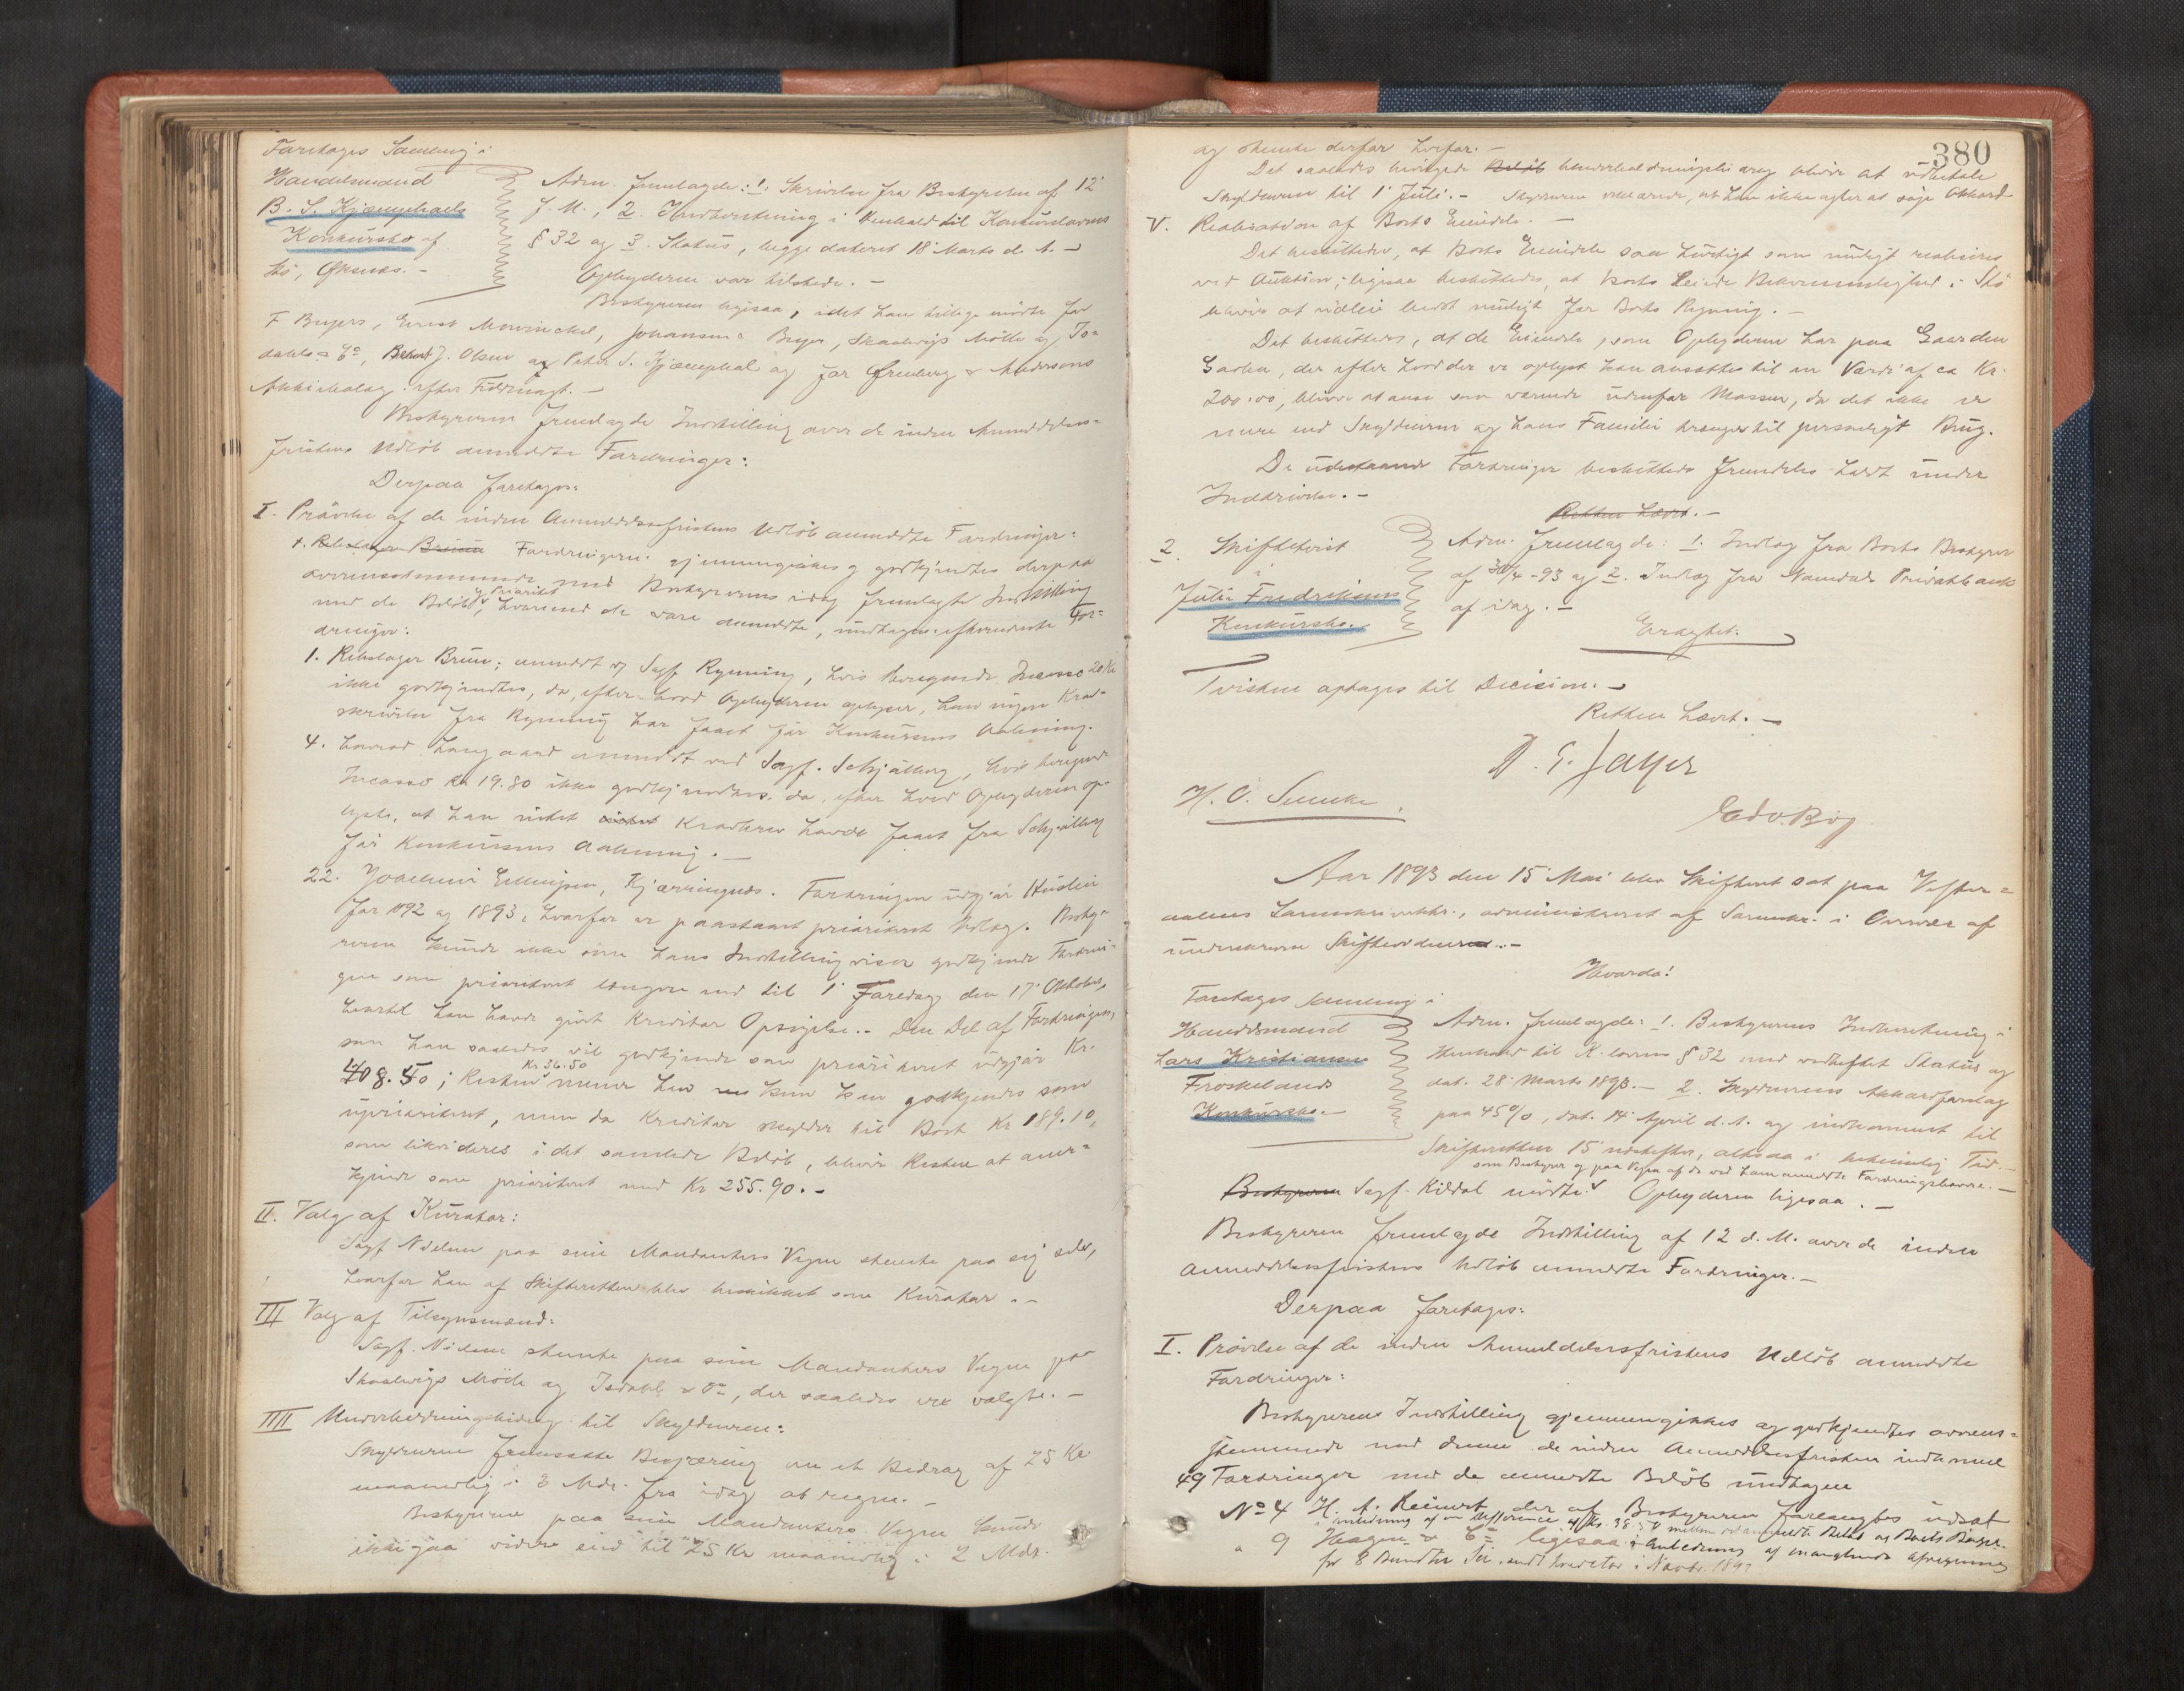 Foretages Samling i
Handelsmand
B. S. Kjæmphaels
Konkursbo af
Stö, Øksnes. -
Adm. fremlagde: 1. Skrivelse fra Bestyrelsen af 12'
d. M., 2. Indberetning i Henhold til Konkurslovens
§ 32 og 3. Status, begge dateret 18 Marts d. A. -
Opbyderen var tilstede. -
Bestyreren ligesaa, idet han tillige mødte for
F Beyers, Ernst Mowinckel, Johansen & Beyer, Skaalevigs Mölle og Is-
dahls & Co, J. Olsen og Peter S. Kjæmphal og for Grenberg & Andersons
Aktiebolag efter Fuldmagt. -
Bestyreren fremlagde Indstilling over de inden Anmeldelses-
fristens Udløb anmeldte Fordringer:
Derpaa foretoges:
I. Prövelse af de inden Anmeldelsesfristens Udløb anmeldte Fordringer:
Fordringerne gjennemgikkes og godkjendtes derpaa
overensstemmende med Bestyrerens idag fremlagte Indstilling
med de Beløb og Prioritet, hvormed de vare anmeldte, undtagen efternævnte For-
dringer:
1. Rebslager Brun; anmeldt v Sagf. Rynning, hvis beregnede Incasso 20 Kr
ikke godkjendtes, da, efter hvad Opbyderen oplyser, han ingen Krav-
skrivelse fra Rynning har faaet för Konkursens Aabning.
4. Conrad Langaard anmeldt ved Sagf. Schjölberg, hvis beregnede
Incasso Kr 19.80 ikke godkjendtes, da, efter hvad Opbyderen op-
lyste, at han intet Kravbrev havde faaet fra Schjölberg
för Konkursens Aabning. -
22. Joachim Ellingsen, Kjærringnes. Fordringen udgjør Husleie
for 1892 og 1893, hvorfor er paastaaet prioriteret Udlæg. Besty-
reren kunde ikke som hans Indstilling viser godkjende Fordrin-
gen som prioriteret længere end til 1' Faredag den 17' Oktober,
hvortil han havde givet Kreditor Opsigelse. - Den Del af Fordringen,
som han saaledes vil godkjende som prioriteret udgjør Kr.
408.50; Resten Kr 36.50 mener han kun kan godkjendes som
uprioriteret, men da Kreditor skylder til Boet Kr 189.10,
som likvideres i det samlede Beløb, bliver Resten at aner-
kjende som prioriteret med Kr 255.90. -
II. Valg af Kurator:
Sagf Nielsen paa sine Mandanters Vegne stemte paa sig selv,
hvorfor han af Skifteretten blev beskikket som Kurator. -
III Valg af Tilsynsmænd:
Sagf. Nielsen stemte paa sine Mandanters Vegne paa
Skaalevigs Mölle og Isdahl & Co, der saaledes ere valgte. -
IIII Underholdningsbidrag til Skyldneren:
Skyldneren fremsatte Begjæring om et Bidrag af 25 Kr
maanedlig i 3 Mdr. fra idag at regne. -
Bestyreren paa sine Mandanters Vegne kunde
ikke gaa videre end til 25 Kr maanedlig i 2 Mdr.
380
og stemte derfor herfor. -
Det saaledes bevilgede Underholdningsbidrag bliver at udbetale
Skyldneren til 1' Juli. - Skyldneren erklærede, at han ikke agter at søge Akkord
V. Realisation af Boets Eiendele. -
Det besluttedes, at Boets Eiendele saa hurtigt som muligt realiseres
ved Auktion; ligesaa besluttedes, at Boets leiede Bekvemmelighed i Stö
bliver at udleie bedst muligt for Boets Regning. -
Det besluttes, at de Eiendele, som Opbyderen har paa Gaarden
, der efter hvad der er oplyst kan ansættes til en Værdi af ca Kr.
200.00, bliver at anse som værende udenfor Massen, da det ikke er
mere end Skyldneren og hans Familie trænger til personligt Brug.
De udestaaende Fordringer besluttedes fremdeles holdt under
Inddrivelse. -
Retten hævet. -
2. Skiftetvist
i
Julie Fredriksens
Konkursbo.
Adm. fremlagde: 1. Indlæg fra Boets Bestyrer
af 30/4 - 93 og 2. Indlæg fra Namdals Privatbank
af idag. -
Eragtet:
Tvisten optages til Decision. -
Retten hævet. -
H. O. Semcke.
Edv. Bög
Aar 1893 den 15' Mai blev Skifteret sat paa Vester-
aalens Sorenskriverktr., administreret af Sorenskr. i Overvær af
undertegnede Skiftevidner. -
Hvorda!
Foretages Samling i
Handelsmand
Lars Kristiansen
Froskelands
Konkursbo. -
Adm. fremlagde: 1. Bestyrerens Indberetning i
Henhold til K. lovens § 32 med vedheftet Status og
dat. 28' Marts 1893. - 2. Skyldnerens Akkordforslag
paa 45 %, dat. 14' April d. A. og indkommet til
Skifteretten 15' næstefter, altsaa i betimelig Tid. -
som Bestyrer og paa Vegne af de ved ham anmeldte Fordringshavere. -
Bestyreren Sagf. Kildal mödte. Opbyderen ligesaa. -
Bestyreren fremlagde Indstilling af 12 d. M. over de inden
Anmeldelsesfristens Udløb anmeldte Fordringer. -
Derpaa foretoges:
I. Prövelse af de inden Anmeldelsesfristens Udløb anmeldte
Fordringer:
Bestyrerens Indstilling gjennemgikkes og godkjendtes overens-
stemmende med denne de inden Anmeldelsesfristen indkomne
49 Fordringer med de anmeldte Beløb undtagen
No 4 H. A. Reinert, der af Bestyreren forlangtes udsat
i Anledning af en Difference af Kr. 38.58 mellem det anmeldte Beløb og Boets Bøger.
" 9 Hagen & Co ligesaa i Anledning af manglende Afregning
for 8 Bundter Sei, sendt Kreditor i Novbr. 1892